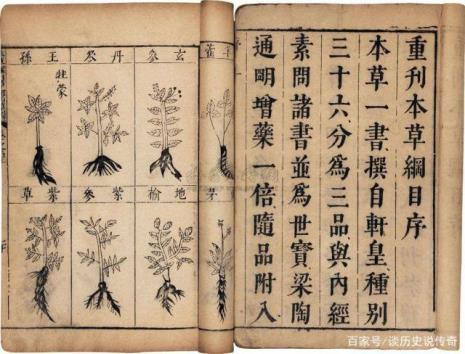 重刊本草綱目序
本草一書撰自軒皇種別
三十六分爲三品與內經
素問諸書並爲世寶梁陶
通明增藥一倍隨品附入
玄參
丹參
王孫
牡蒙
地榆
紫參
紫草
百家号/谈历史说传奇